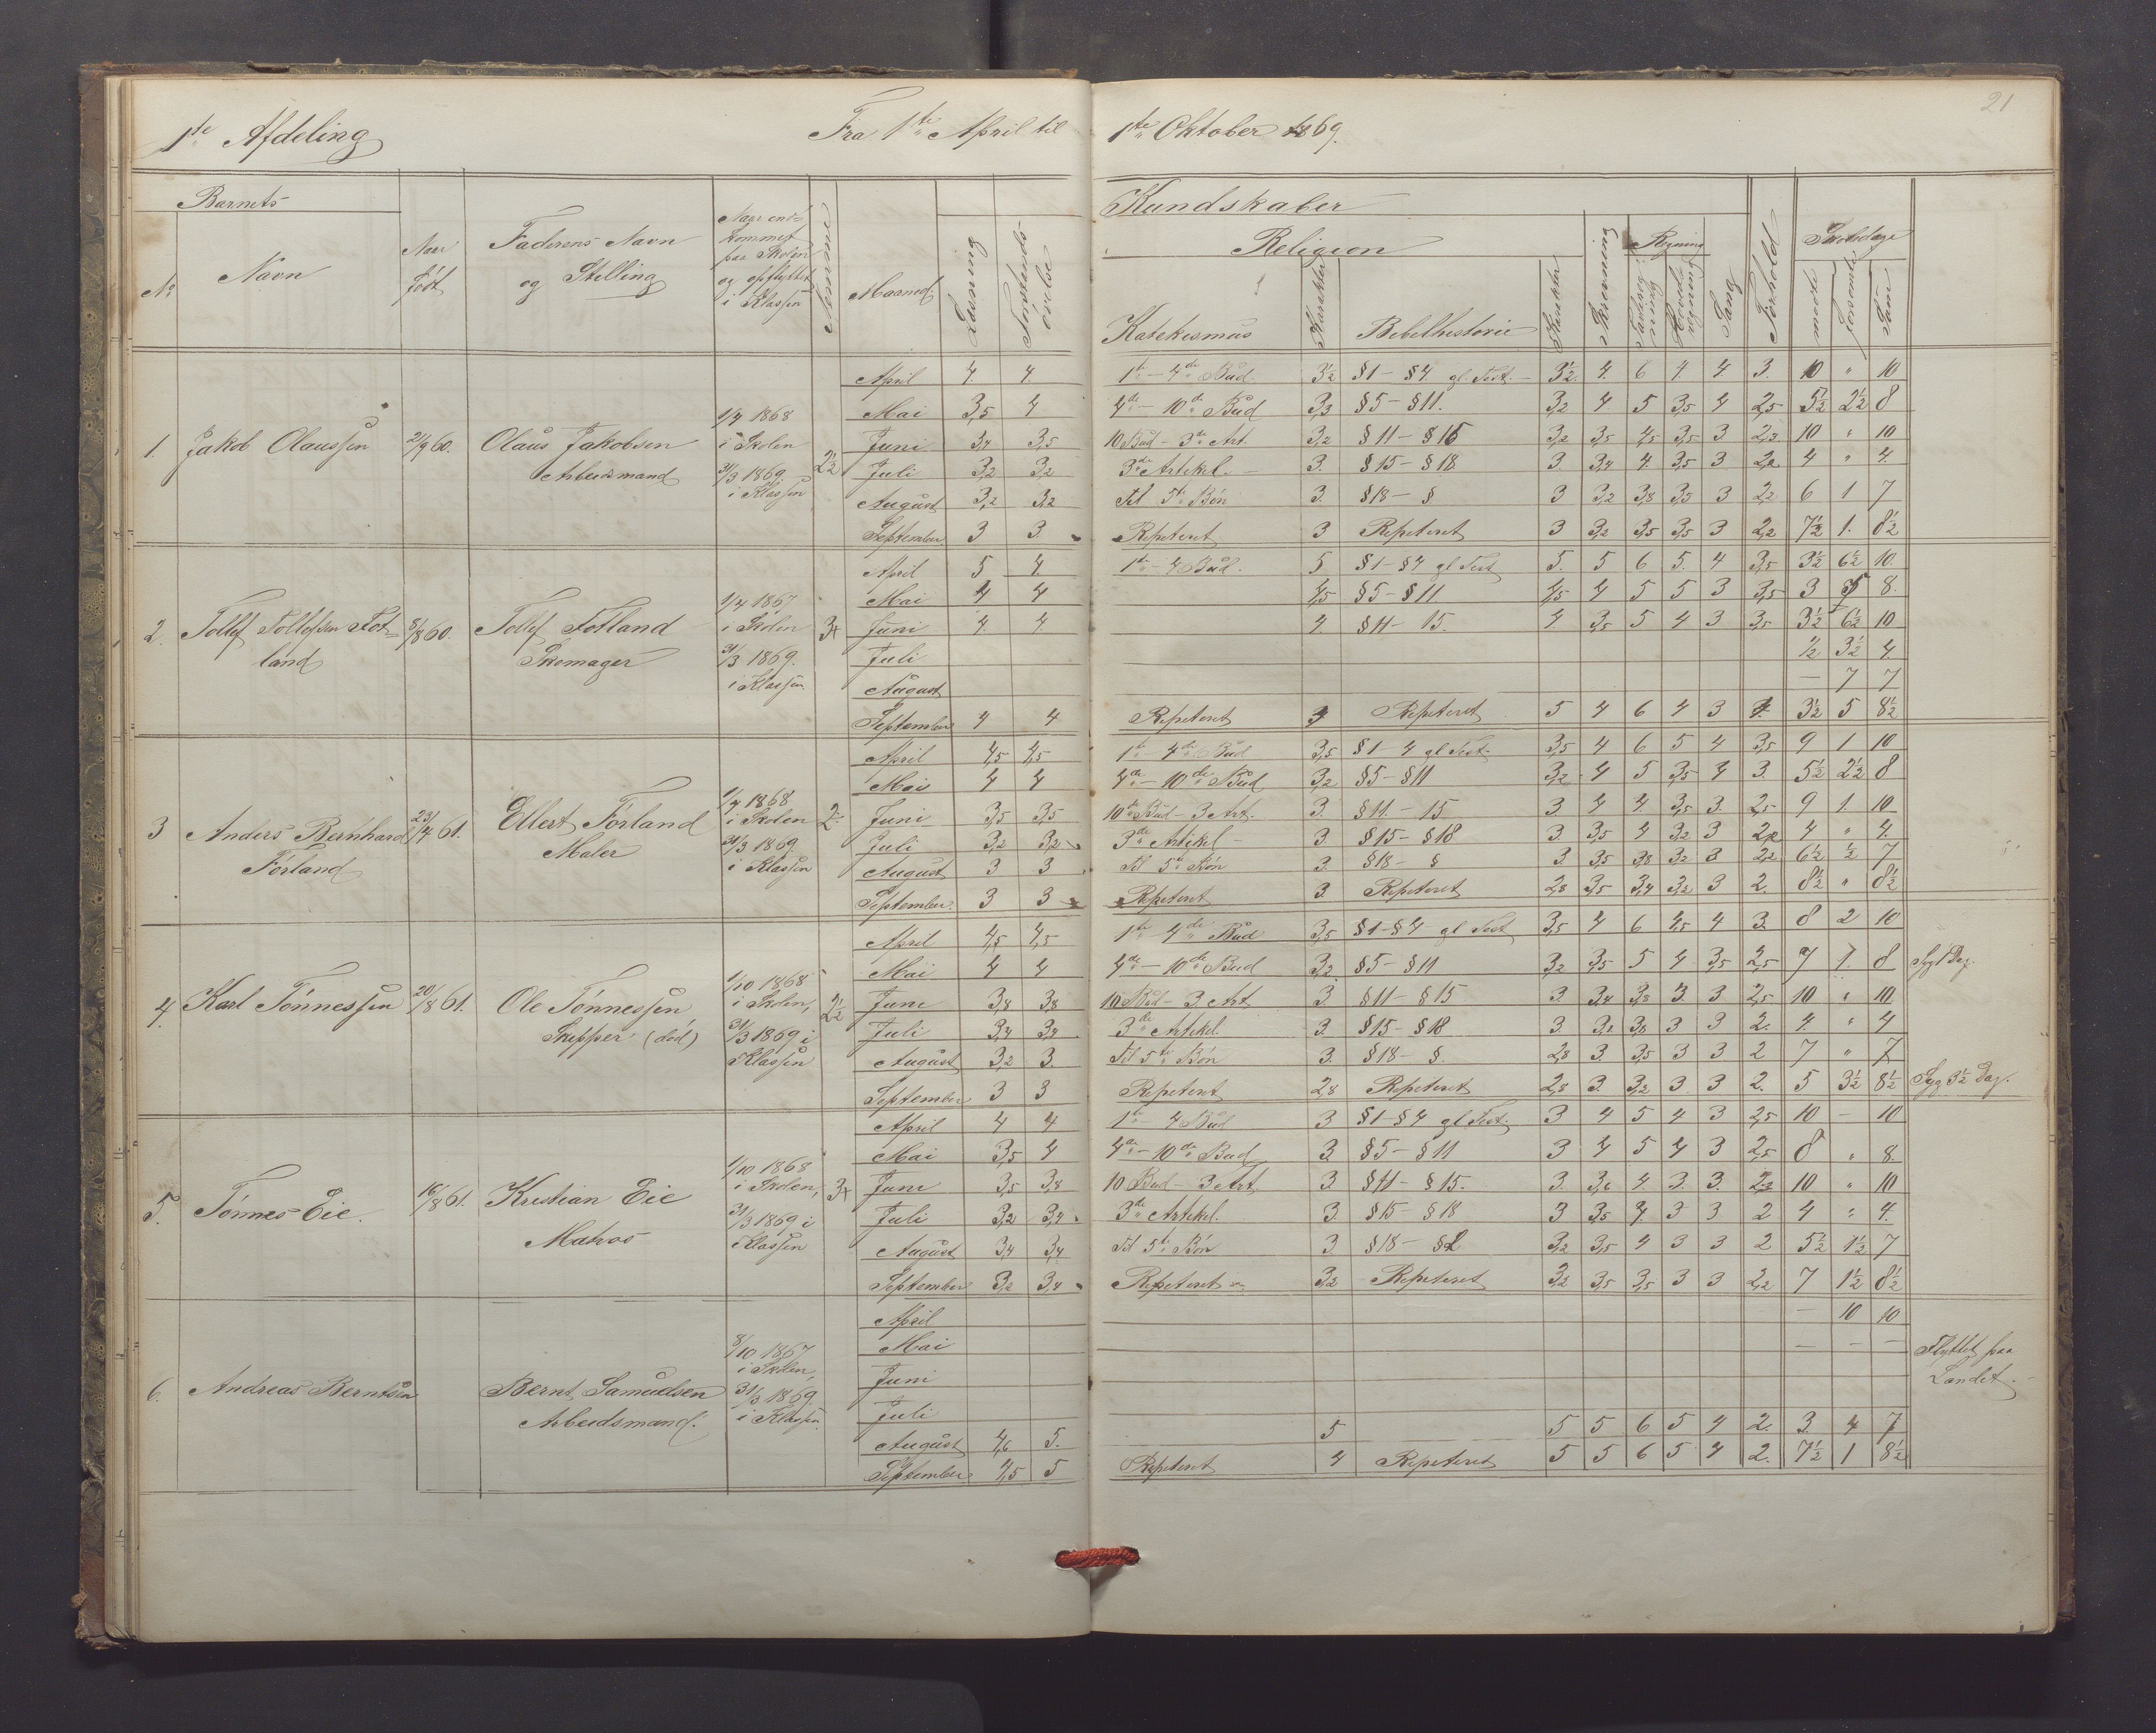 21
1ste Afdeling Fra 1ste April til 1ste Oktober 1869.
Barnets Kundskaber
No Navn Naar født Faderens Navn og Stilling Naar indkommet paa Skolen og opflyttet i Klassen Maaned Læsning Forstandsøvelse Religion Skrivning Regning Sang Forhold Skoledage
Katekismus Karakter Bibelhistorie Karakter Tavleregning Hovedregning mødt forsømt Sum
April 4. 4. 1ste - 4de Bud. 3½ §1 - §4 gl. Test. - 3½. 4. 6 4 4 3. 10 " 10
Mai 3,5 4 4de - 10de Bud 3,3 §5 - §11. 3,2 4 5 3,5 4 2,5 5½ 2½ 8
1. Jakob Olaussen 2/9 60. Olaus Jakobsen Arbeidsmand 1/4 1868 i Skolen 31/3 1869 i Klassen 2½
Juni 3,4 3,5 10 Bud - 3de Art. 3,2 §11 - §15 3,2 3,5 4,5 3,5 3 2,3 10 " 10
Juli 3,2 3,2 3de Artikel. - 3. §15 - §18 3. 3,4 4. 3,5 3 2,2 4 " 4.
August 3,2 3,2 Til 5te Bøn 3. §18 - § 3 3,2 3,8 3,5 3 2,2 6 1 7
September 3 3. Repeteret 3 Repeteret 3 3,2 3,5 3,5 3 2,2 7½ 1. 8½
April 5 4. 1ste - 4 Bud. 5 §1 - §4 gl Test 5. 5 6 5. 4 3,5 3½ 6½ 10.
Mai 4 4 4,5 §5 - §11 4,5 4 5 5 3 3,5 3 5 8.
2. Tollef Tollefsen Fotland 8/8 60. Tollef Fotland Skomager 1/4 1867 i Skolen 31/3 1869. i Klassen 3+
Juni 4. 4. 4. §11 - 15. 4 3,5 5 4 3 3,5 3½ 6½ 10
Juli ½ 3½ 4.
August - 7 7
September 4 4 Repeteret Repeteret 5 4 6 4 3 3½ 5 8½
April 4,5 4,5 1ste - 4de Bud 3,5 §1 - 4 gl Test. 3,5 4 6 5 4 3,5 9 1 10
Mai 4 4 4de - 10de Bud 3,2 §5 - §11 3,2 4 5 3,5 4 3. 5½ 2½ 8
3 Anders Bernhard Førland 23/4 61. Ellert Førland Maler 1/4 1868 i Skolen 31/3 1869. i Klassen 2÷
Juni 3,5 3,5 10de Bud - 3 Art. 3. §11. - 15 3 4 4. 3,5 3. 2,5 9 1. 10
Juli 3,2 3,2 3de Artikel - 3. §15 - §18 3 3,5 4 3,2 3 2,2 4 " 4.
August 3 3 Til 5te Bøn 3. §18 - § 3 3,5 3,8 3,2 3 2,2 6½ ½ 7
September. 3 3 Repeteret 3. Repeteret 2,8 3,5 3,4 3,2 3 2. 8½ " 8½
April 4,5 4,5 1ste 4de Bud 3,5 §1 - §4 gl Test 3,5 4 6 4,5 4 3. 8 2 10
Mai 4 4 4de - 10de Bud 3,2 §5 - §11 3,2 3,5 5 4 3,5 2,5 7 1. 8 Syg 1 Dag.
4. Karl Tønnessen 20/8 61. Ole Tønnessen, Skipper (død) 1/10 1868 i Skolen, 31/3 1869 i Klassen 2½
Juni 3,8 3,8 10 Bud - 3. Art 3. §11 - §15 3. 3,4 3,8 3. 3 2,5 10 " 10
Juli 3,4 3,4 3de Artikel 3. §15 - §18 3 3,2 3,8 3 3 2. 4. " 4
August 3,2 3. Til 5te Bøn 3. §18 - §. 2,8 3. 3,5 3 3 2 7 " 7
September 3 3 Repeteret 2,8 Repeteret 2,8 3. 3,2 3 3 2. 5 3½ 8½ Syg 3½ Dag.
April 4 4 1ste - 4 Bud 3 §1 - §4 gl Test. 3 4 5 4 3 2,5 10 - 10
Mai 3,5 4 4de - 10de Bud 3 §5 - §11 3 4 5 4 3 2,5 8 " 8.
5. Tønnes Eie. 16/8 61. Kristian Eie Matros 1/10 1868 i Skolen, 31/3 1869 i Klassen 3+
Juni 3,5 3,8 10 Bud - 3 Art 3 §11 - §15. 3. 3,6 4. 3. 3. 2,3 10 " 10
Juli 3,2 3,4 3de Artikel. 3. §15 - §18 3 3,5 4. 3 3 2 4 " 4.
August 3,4 3,4 Til 5te Bøn 3. §18 - § 3,2 3,5 4 3 3 2 5½ 1½ 7
September 3,2 3,4 Repeteret 3,2 Repeteret 3,2 3,5 3,5 3 3 2,2 7 1½ 8½
April - 10 10
Mai - - - Flyttet paa Landet.
6. Andreas Berntsen Bernt Samuelsen Arbeidsmand. 8/10 1867 i Skolen, 31/3 1869. i Klassen.
Juni
Juli
August 4,6 5. 5 5 5 6 5 4 2. 3. 4 7
September 4,5 5 Repeteret 4 Repeteret 5 5 6 5 4 2. 7½ 1 8½